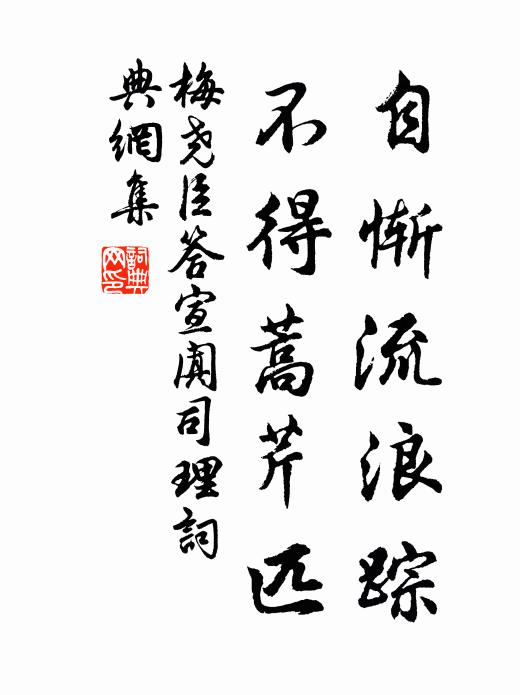 自慚流浪踪
不得蒿芹匹
梅堯臣答宣闐司理詞
典網集
詞典網印